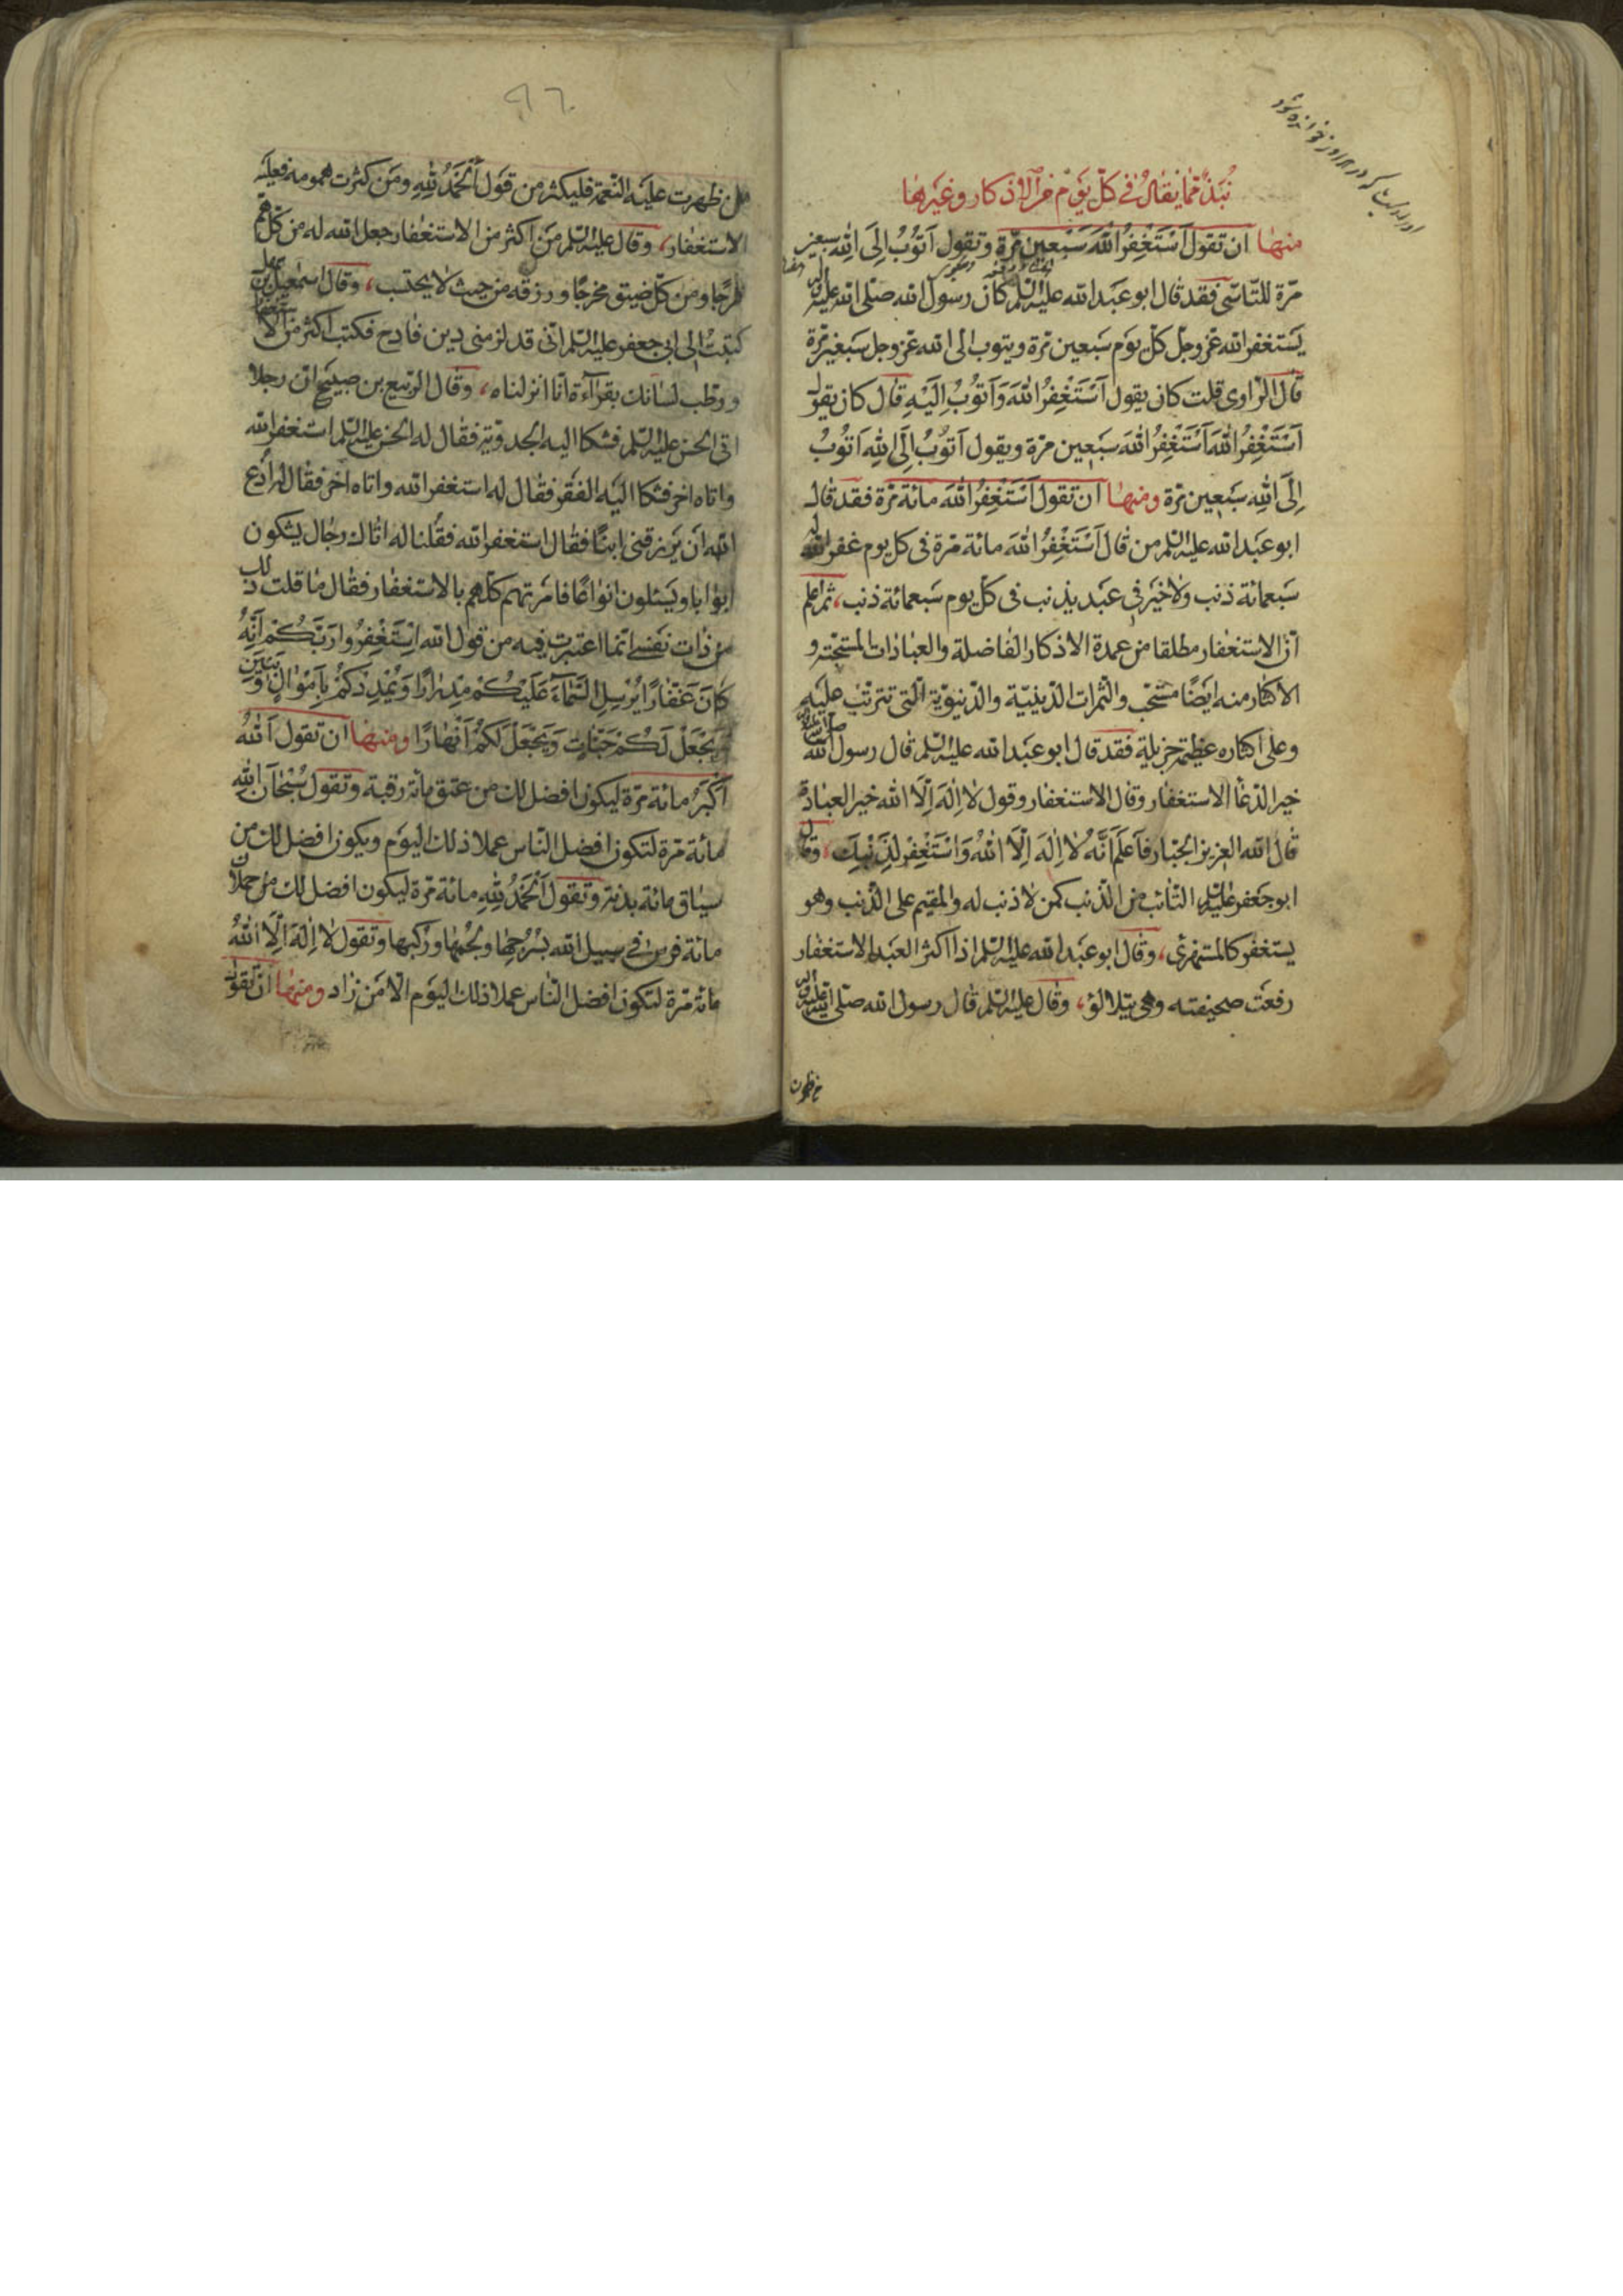 نُبَذٌ مّمٰا يُقٰالُ فى كلّ يَوْم مِنَ الْاذكار وغَيرهٰا
منهٰا ان تقول اَسْتَغْفِرُ اللّٰهَ سَبْعين مَرّة وتقول اَتوُبُ اِلَى اللّٰهِ سبعين
مرّة للتّاسّى فقد قال ابو عبد الله عليه السّلم كان رسول الله صَلّى الله عليه وآله
يَستغفر الله عزّ وجلّ كلّ يوَم سَبعين مَرّة ويتوب الى الله عزّ وجل سَبعين مَرّة
قال الرّاوى قلت كان يقول اَسْتَغْفِرُ اللّٰهَ وَاَتوُبُ اِلَيْهِ قال كان يقول
اَسْتَغْفِرُ اللّٰهَ اَسْتَغْفِرُ اللّٰهَ سَبعين مرّة ويقول اَتوُبُ اِلَى اللّٰهِ اَتوُبُ
اِلَى اللّٰهِ سَبعين مَرّة ومنهٰا ان تقول اَسْتَغْفِرُ اللّٰهَ مائة مَرّة فقد قال
ابو عبَد الله عليه السّلم من قال اَسْتَغْفِرُ اللّٰهَ مائة مَرّة فى كل يوم غفر الله له
سَبعمائة ذنب ولا خَير فى عبَد يذنب فى كلّ يوم سَبعمائة ذنب، ثمّ اعلم
انّ الاستغفار مطلقا من عمدة الاذكار الفاضلة والعبٰادات المستحبّة و
الاكثار منه ايَضًا مستحب والثّمرات الدّينيّة والدّنيويّة الّتى تترتّب عليَه
وعلى اكثاره عظيمة جزيلة فقد قال ابو عبَد الله عليه السّلم قال رسول الله صلى الله عليه وآله
خير الدّعآ الاستغفار وقال الاستغفار وقول لا اِلٰهَ اِلّا الله خير العبٰادة
قال الله العزيز الجبّار فَاعْلَمْ اَنَّهُ لا اِلٰهَ اِلّا اللّٰهُ وَاسْتَغْفِرْ لِذَنْبِكَ، وقال
ابو جعَفر عليه السّلم التّائب من الذّنب كمن لا ذنب له والمقيم على الذّنب وهو
يستغفر كالمستهزئ، وقال ابو عبَد الله عليه السّلم اذا اكثر العبَد الاستغفار
رفعَت صحيفته وهى يتلألؤ، وقال عليه السّلم قال رسول الله صلّى الله عليه وآله
من ظهرت عليَه النّعمة فليكثر من قول اَلْحَمْدُ لِلّٰهِ ومَن كثرت همومه فعليَه
الاستغفار، وقال عليه السّلم مَن اكثر من الاستغفار جعل الله له من كلّ همّ
فرجًا ومن كلّ ضيق مخرجًا ورزقه من حيث لا يحتسب، وقال اسمعيل بن سهل
كتبتُ الى ابى جعفر عليه السّلم انّى قد لزمنى دين فادح فكتب اكثر من الاستغفار
ورطّب لسٰانك بقرآءة انّا انزلناه، وقال الرّبيع بن صبيَح انّ رجلا
اتى الحسن عليه السّلم فشكا اليه الجدوبة فقال له الحسن عليه السّلم استغفر الله
واتاه اخر فشكا اليَه الفقر فقال له استغفر الله واتاه اخر فقال له ادع
الله ان يرَزقنى ابنًا فقال استغفر الله فقلنا له اتاك رجٰال يشكون
ابوٰابا ويَسئلون انواعًا فامَرتهم كلّهم بالاستغفار فقال مٰا قلت ذلك
من ذٰات نفسى انّما اعتبرت فيه من قول الله اِسْتَغْفِرُوا رَبَّكُمْ اِنَّهُ
كٰانَ غَفّٰارًا يُرْسِلِ السَّمٰآءَ عَلَيْكُمْ مِدْرٰارًا وَيُمْدِدْكُمْ بِاَمْوٰالٍ وَبَنينَ
وَيَجْعَلْ لَكُمْ جَنّٰاتٍ وَيَجْعَلْ لَكُمْ اَنْهٰارًا ومنهٰا ان تقول اَللّٰهُ
اَكْبَرُ مائة مَرّة ليكون افضل لك من عتق مائة رقبة وتقول سُبْحٰانَ اللّٰهِ
مائة مَرّة لتكون افضل النّاس عملا ذلك اليوَم ويكون افضل لك من
سيٰاق مائة بدنة وتقول اَلْحَمْدُ لِلّٰهِ مائة مَرّة ليكون افضل لك من حملان
مائة فرس فى سبيل الله بسُرُجهٰا ولجُمهٰا وركبها وتقول لا اِلٰهَ اِلّا اللّٰهُ
مائة مَرّة لتكون افضل النّاس عملا ذلك اليوَم الّا مَن زاد ومنهٰا ان تقول